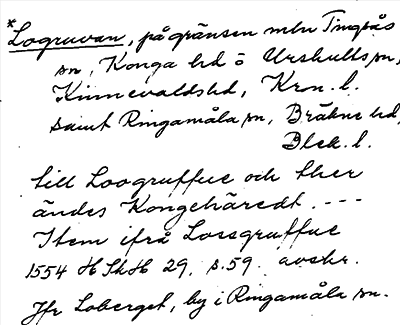 *Logruvan, på gränsen mln Tingsås
sn, Konga hd o Urshults sn,
Kinnevalds hd, Krn. l.
samt Ringamåla sn, Bräkne hd,
Blek. l.
till Loogruffue och ther
ändes Kongehäredt. ---
Item ifrå Loosgruffue
1554 HSkH 29, s. 59. avskr.
Jfr Loberget, by i Ringamåla sn.